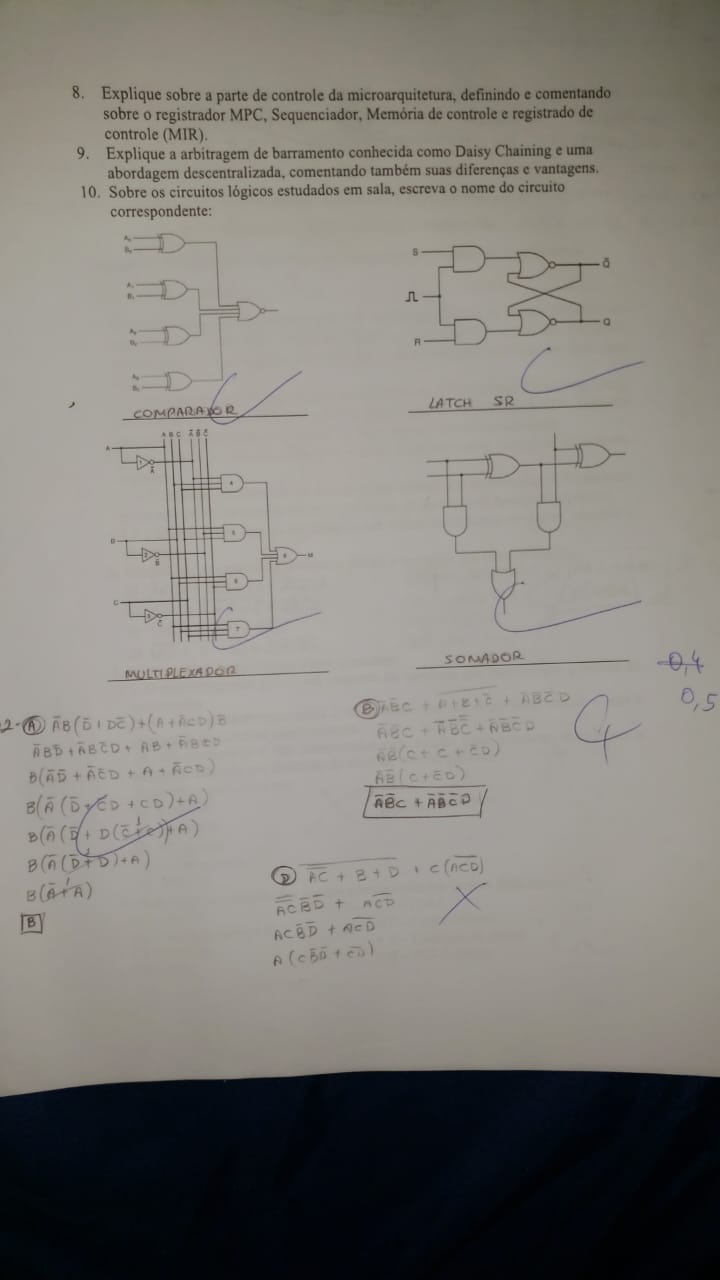 8. Explique sobre a parte de controle da microarquitetura, definindo e comentando
sobre o registrador MPC, Sequenciador, Memória de controle e registrado de
controle (MIR).
9. Explique a arbitragem de barramento conhecida como Daisy Chaining e uma
abordagem descentralizada, comentando também suas diferenças e vantagens.
10. Sobre os circuitos lógicos estudados em sala, escreva o nome do circuito
correspondente:
S
Q̄
R
Q
COMPARADOR
LATCH SR
A B C Ā B̄ C̄
A
1
Ā
4
5
2
B̄
8
M
6
C
3
C̄
7
MULTIPLEXADOR
SOMADOR
-0,4
0,5
2- A ĀB(D̄ + DC̄) + (A + ĀCD)B
ĀBD̄ + ĀBC̄D + AB + ĀBCD
B(ĀD̄ + ĀC̄D + A + ĀCD)
B(Ā(D̄ + C̄D + CD) + A)
B(Ā(D̄ + D(C̄ + C)) + A)
1
B(Ā(D̄ + D) + A)
1
B(Ā + A)
B
B
ĀB̄(C + C̄D)
ĀB̄C + ĀB̄C̄D
D